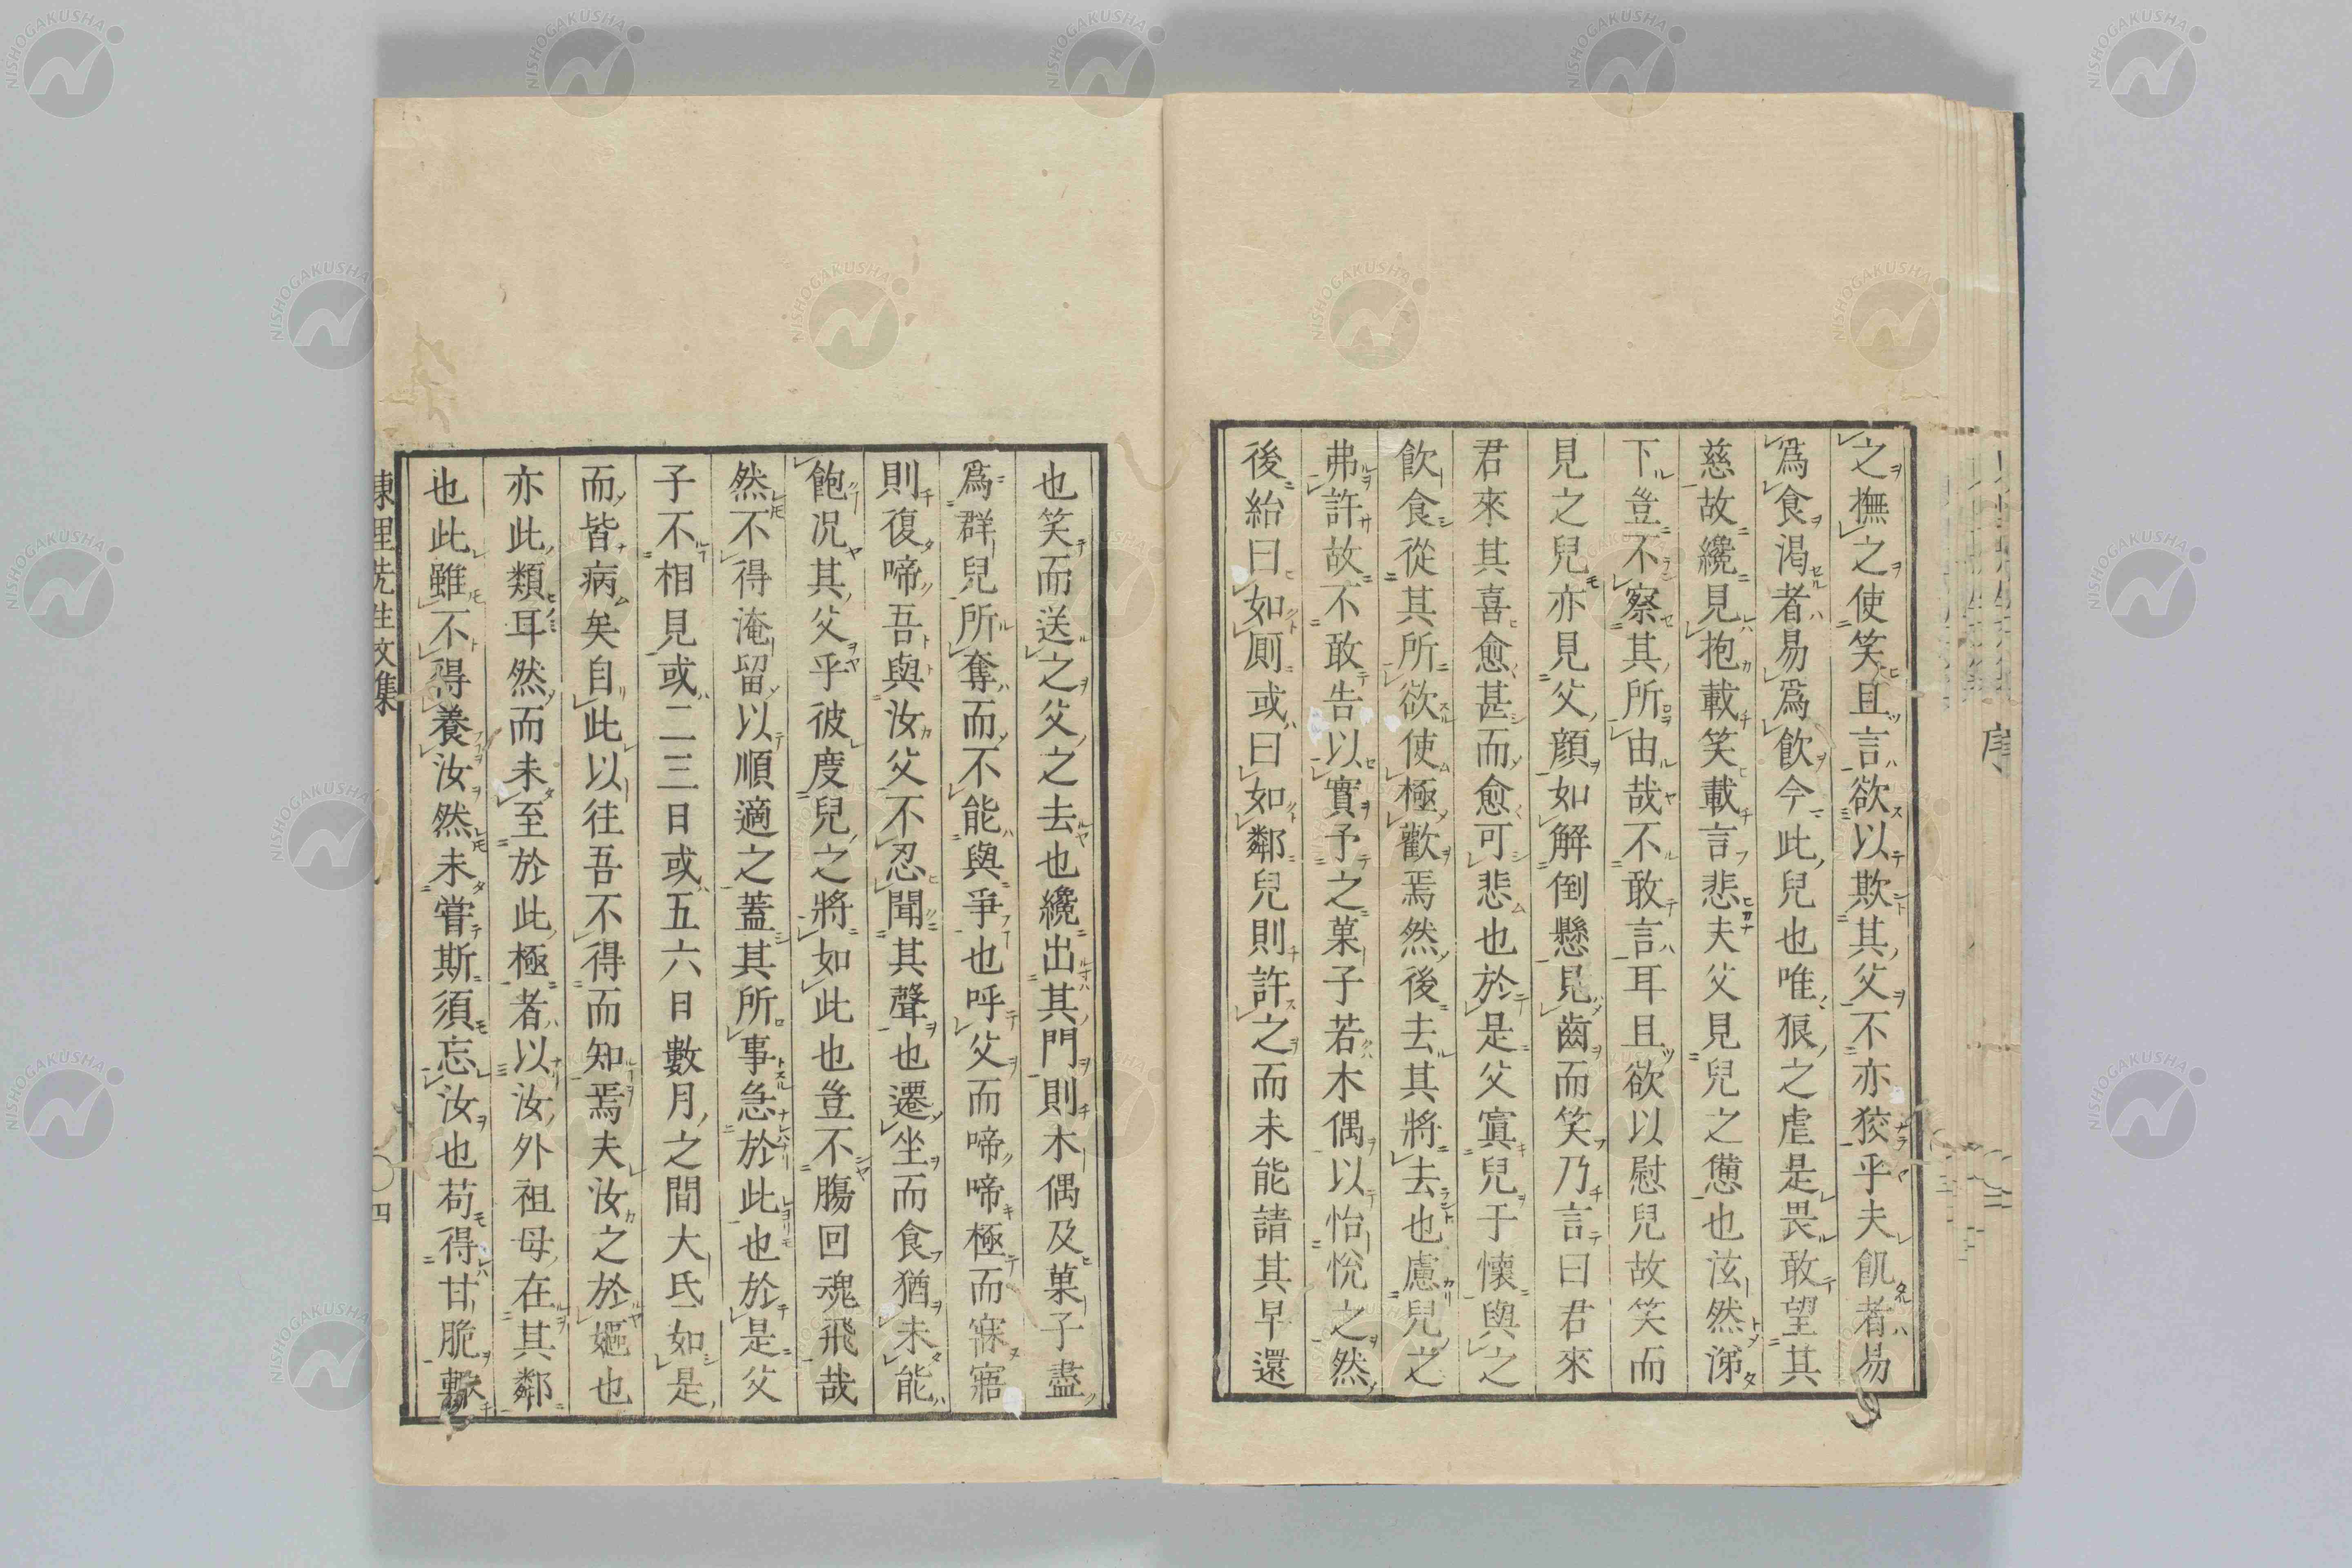 之撫之使笑且言欲以欺其父不亦狡乎夫飢者易
爲食渴者易爲飲今此兒也唯狼之虐是畏敢望其
慈故纔見抱載笑載言悲夫父見兒之憊也泫然涕
下豈不察其所由哉不敢言耳且欲以慰兒故笑而
見之兒亦見父顔如解倒懸見齒而笑乃言曰君來
君來其喜愈甚而愈可悲也於是父寘兒于懷與之
飮食從其所欲使極歡焉然後去其將去也慮兒之
弗許故不敢告以實予之菓子若木偶以怡悅之然
後紿曰如厠或曰如鄰兒則許之而未能請其早還
也笑而送之父之去也纔出其門則木偶及菓子盡
爲群兒所奪而不能與爭也呼父而啼啼極而寐寤
則復啼吾與汝父不忍聞其聲也遷坐而食猶未能
飽况其父乎彼度兒之將如此也豈不腸回魂飛哉
然不得淹留以順適之蓋其所事急於此也於是父
子不相見或二三日或五六日數月之間大氐如是
而皆病矣自此以往吾不得而知焉夫汝之於嫗也
亦此類耳然而未至於此極者以汝外祖母在其鄰
也此雖不得養汝然未嘗斯須忘汝也苟得甘脆輒
東里先生文集
四
序
NISHOGAKUSHA